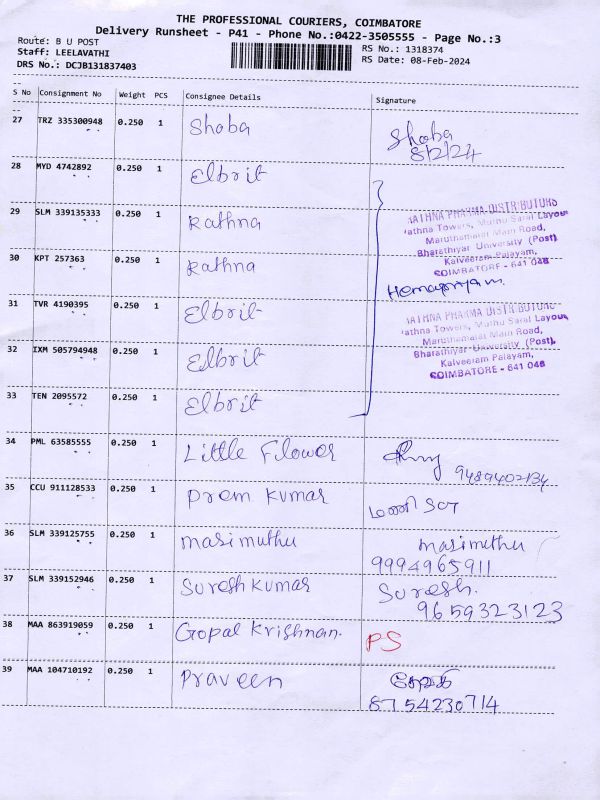 THE PROFESSIONAL COURIERS, COIMBATORE
Delivery Runsheet - P41 - Phone No.:0422-3505555 - Page No.:3
Route: B U POST
Staff: LEELAVATHI
DRS No.: DCJB131837403
RS No.: 1318374
RS Date: 08-Feb-2024
S No Consignment No Weight PCS Consignee Details Signature
27 TRZ 335300948 0.250 1 Shoba Shoba
8/2/24
28 MYD 4742892 0.250 1 Elbrit
29 SLM 339135333 0.250 1 Rathna
RATHNA PHARMA DISTRIBUTORS
Rathna Towers, Muthu Saral Layout
Maruthamalai Main Road,
Bharathiyar University (Post)
Kalveeram Palayam,
COIMBATORE - 641 046
30 KPT 257363 0.250 1 Rathna
31 TVR 4190395 0.250 1 Elbrit
RATHNA PHARMA DISTRIBUTORS
Rathna Towers, Muthu Saral Layout
Maruthamalai Main Road,
Bharathiyar University (Post),
Kalveeram Palayam,
COIMBATORE - 641 046
32 IXM 505794948 0.250 1 Elbrit
33 TEN 2095572 0.250 1 Elbrit
34 PML 63585555 0.250 1 Little Flower
9489402134
35 CCU 911128533 0.250 1 Prem Kumar
36 SLM 339125755 0.250 1 Masimuthu Masimuthu
9994965911
37 SLM 339152946 0.250 1 Suresh Kumar Suresh.
9659323123
38 MAA 863919059 0.250 1 Gopal Krishnan. PS
39 MAA 104710192 0.250 1 Praveen
8754230714